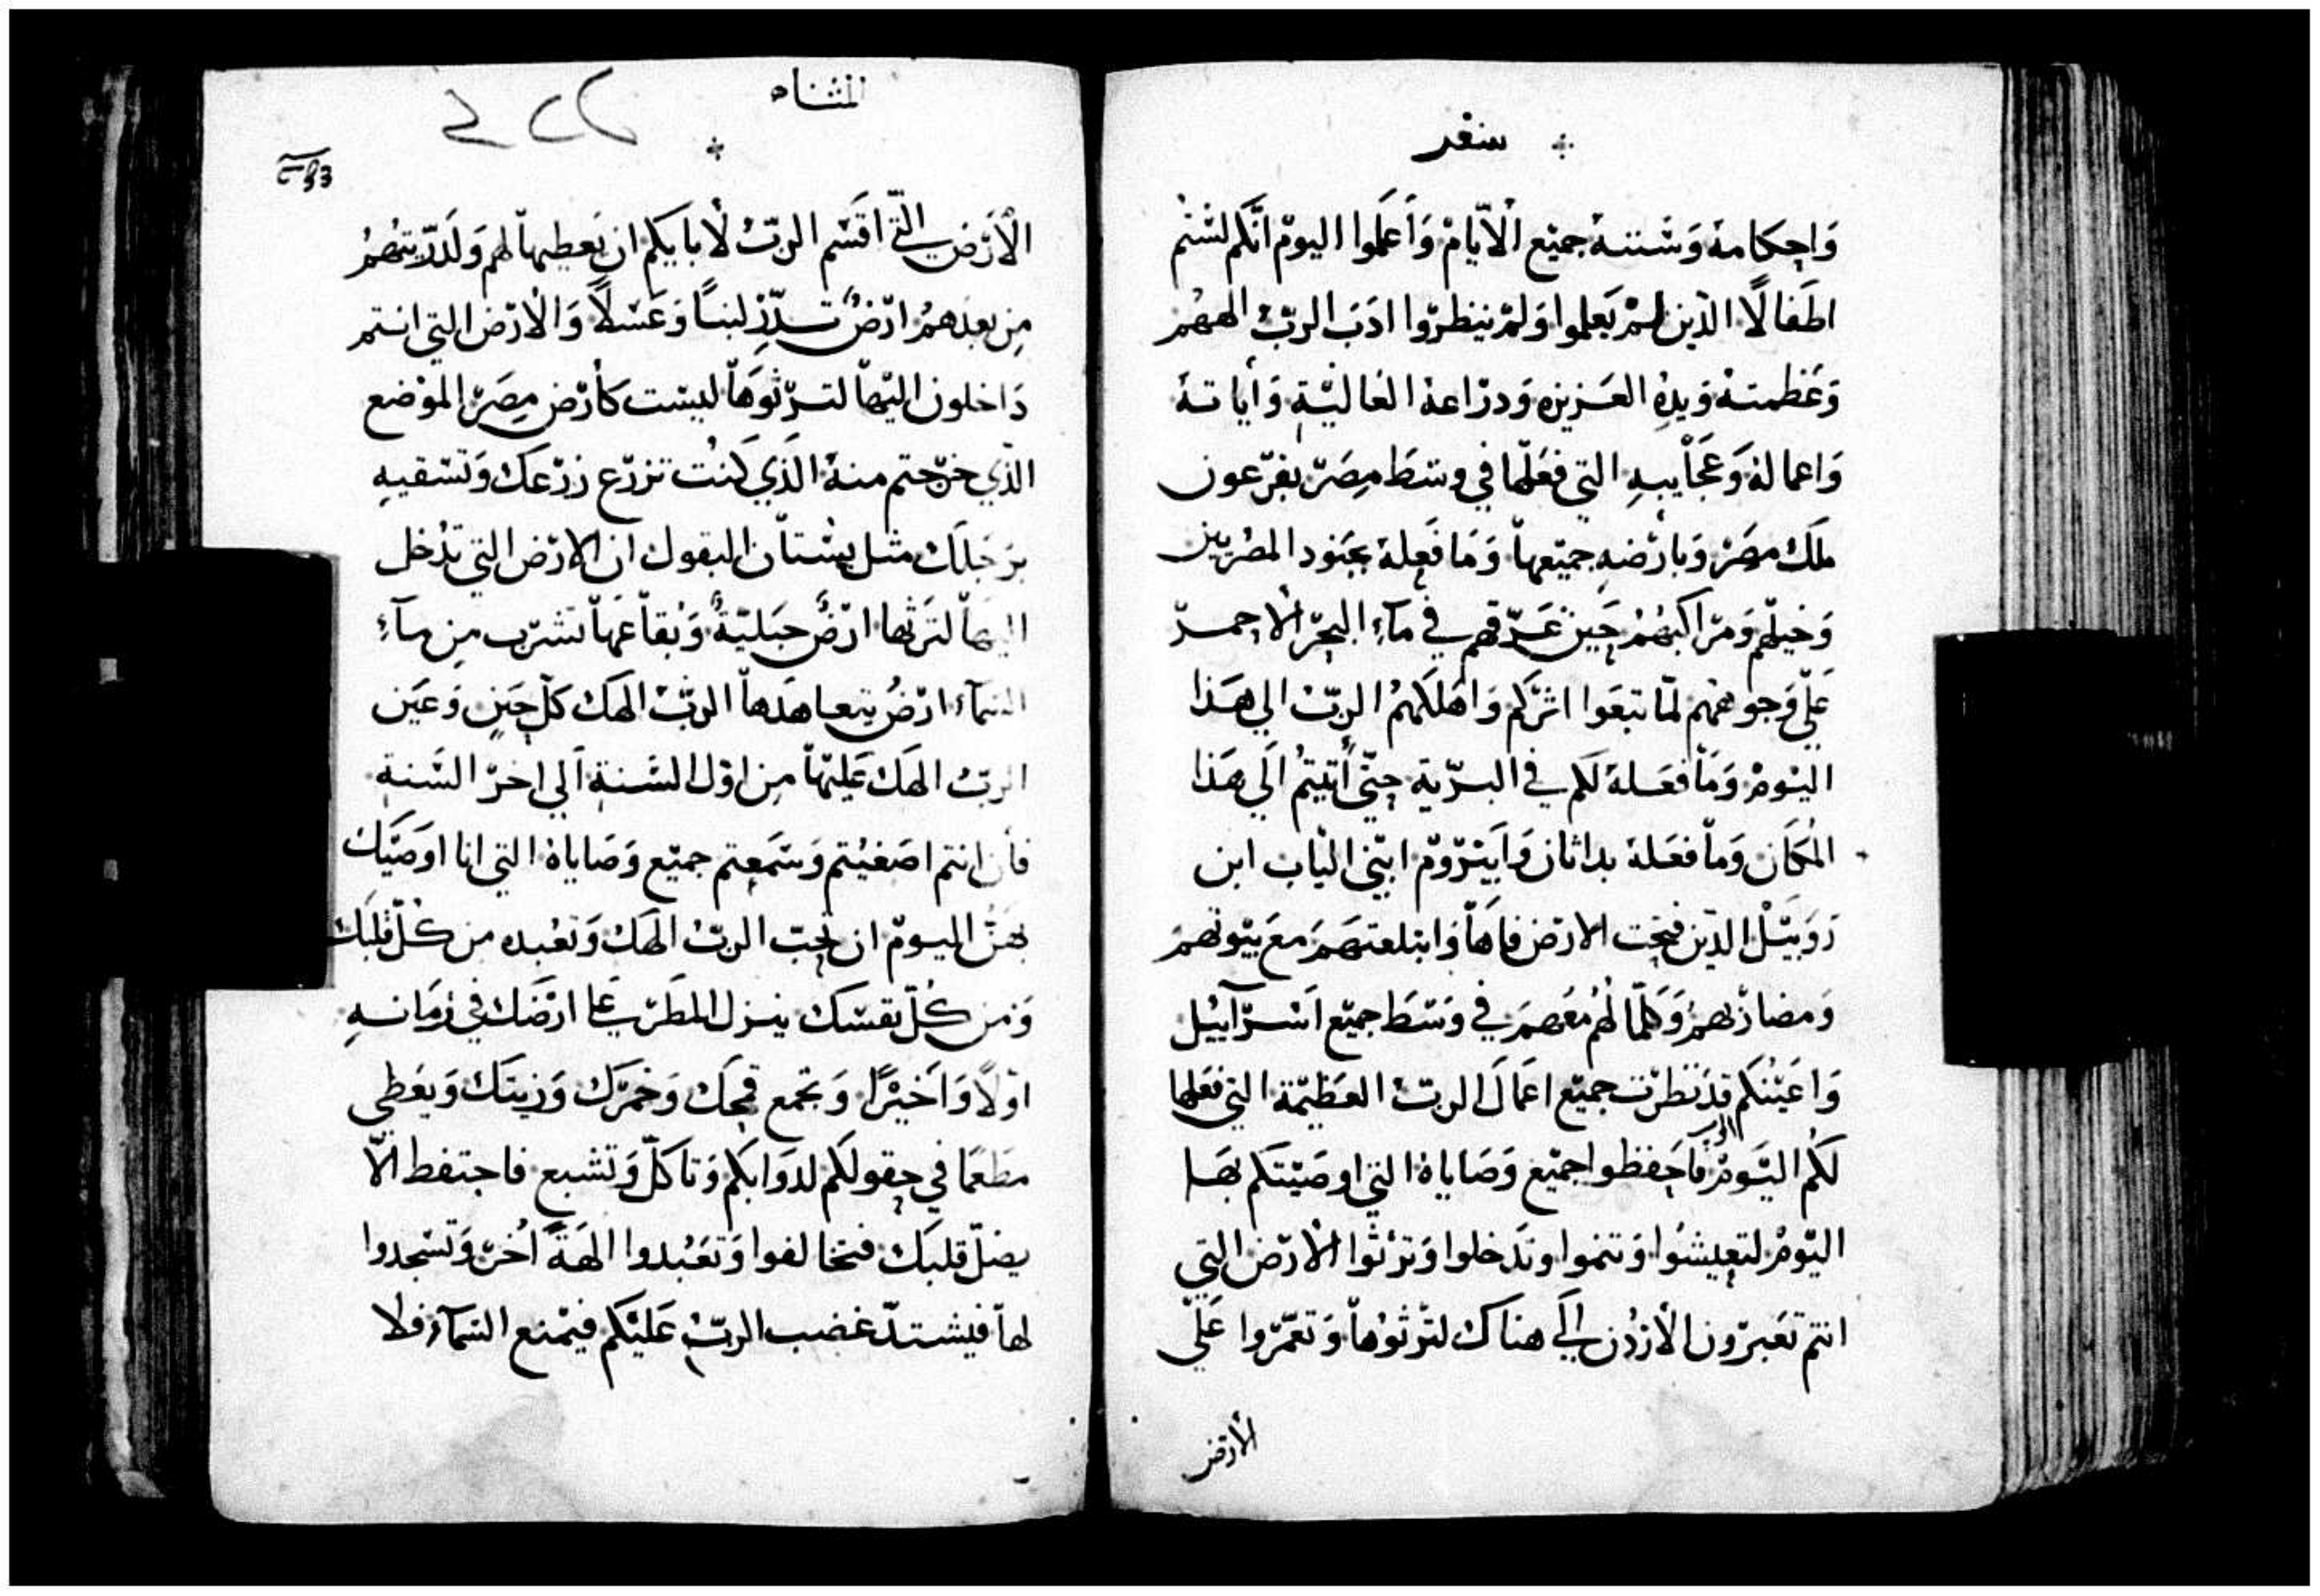 سفر
وَاحكامهُ وَسُننهُ جميْع الأيّامْ وَأعلَموا اليومْ انّكم لسْتم
اطفالًا الذين لمْ يَعلموا وَلمْ ينظرُوا ادَبَ الربّ الههم
وَعَظمتهْ وَيدِهِ العَزيزه وَدرَاعهُ العَاليّة وَأياتهُ
وَاعمالهُ وَعَجَايبهِ التي فعَلها في وسَط مِصَر بفرعون
ملَك مصَر وَبأرضهِ جميْعهاْ وَمَا فعله بجنود المصريين
وَخيلهم وَمرَاكبهُمْ حَين غَرّقهم في مآءِ البحر الاحمر
علي وَجوههم لمّا تبعَوا اثرَكم وَاهَلكَهُم الربّ الي هَذا
اليَومْ وَمَا فعَلهُ لكم في البرّية حتّى أتيتُم الَي هَذا
المُكَان وَمَا فعَلهُ بداثان وَابَيْرَوم ابنّي الياب ابن
رَوبَيْل الذين فتحَت الارض فاهَا وَابتلعتهَمَ معَ بيْوتهم
وَمضاربهمْ وَكلّما لهُم معَهمَ في وَسَط جميْع اسْرآييْل
وَاعَينُكم قدَ نَظرَت جميْع اعمَالَ الربّ العَظيمّة التي فعَلها
لكُم اليَومْ فاحَفظوا جميْع وَصَاياهُ التي اوصَيْتَكم بهَا
اليَومْ لتعيشُوا وَتنموا وتدَخلوا وَترْثوا الأرْض التي
انتم تعَبرُون الأردُن الَي هناك لترْثوُهاْ وَتعمّرْوا عَلَي
الأرض
المثناه
الْأرَض التّي اقَسَم الربّ لأبَايَكم ان يَعطيهاْ لهم وَلذرّيتهُمْ
مِن بعدَهمُ ارْضٌ تدرّ لبنًا وَعَسْلًا وَالْأرَض التي انتم
دَاخلون اليْهاْ لترثوَهاْ ليسْت كأرَض مِصَر الموْضع
الذّي خرجتم منهُ الذَي كَنُت تزرَع زرْعَك وَتسْقيهِ
برَجلَك مثل بسْتاْن البقول ان الارض التي تدْخل
اليهاْ لترَثها ارْضٌ جبَليّةٌ وَبُقاْعَهاْ تشرَب مِن مآءِ
السَمآء ارْضُ يتعاهَدهاْ الربّ الهَك كلّ حَينٍ وَعَين
الربّ الهَك عَليْهاْ مِن اوْل السَنة الَي اخرْ السَنة
فأن انتم اصَغيْتم وَسَمَعتم جميْع وَصَاياهُ التي انا اوَصَيَك
بهَنّ اليومْ ان تحبّ الربّ الهَك وَتعَبده من كُلّ قلبَك
وَمن كُلّ نفسَك ينزل المطَر عَلي ارْضَك في زمَانهِ
اوْلًا وَاخَيْرًا وَتجمع قمحَك وَخمرَك وَزيتَك وَيعَطي
مَطعَمًا في حقولكم لدوَابكم وَتاكلّ وَتشبع فاحتفط الّا
يضلّ قلبَك فتخالفوا وَتعَبدوا الهَةً اُخرْ وَتسْجدوا
لهاْ فيشتدّ غضب الربّ عَليْكم فيمْنع السَمآءَ فلا